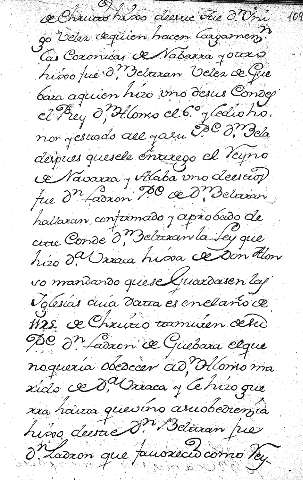 de Christo hijo deeste fue dn Uni
go Velez de quien hacen largamen
las Coronicas de Nabarra y otro
hijo fue dn Beltran Velez de Gue
bara a quien hizo uno de sus Condes
el Rey dn Alonso el 6º y le dio ho
nor y estado a el y a su Pe dn Bela
despues que se le entrego el Reyno
de Navarra y Alaba uno de estos
fue dn Ladron Pe de dn Beltran
hallaran confirmado y aprobado de
este Conde dn Beltran la Ley que
hizo da Urraca hija de Don Alon
so mandando que se Guardasen las
Iglesias cuia data es en el año de
1125 de Christo tamvien de su
Pe dn Ladron de Guebara el que
no queria obedecer a dn Alonso ma
rido de da Urraca y le hizo gue
rra hasta que vino a su obediencia
hijo deeste dn Beltran fue
dn Ladron que favorecio como Rey